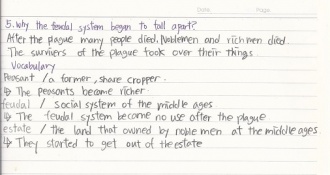 Date Page
5. Why the feudal system began to fall apart?
After the plague many people died, Noblemen and rich men died.
The survivers of the plague took over their things
Vocabulary
Peasant / a farmer, share cropper.
↳ The peasants became richer
feudal / social system of the middle ages
↳ The feudal system became no use after the plague
estate / the land that owned by noble men at the middle ages
↳ They started to get out of the estate